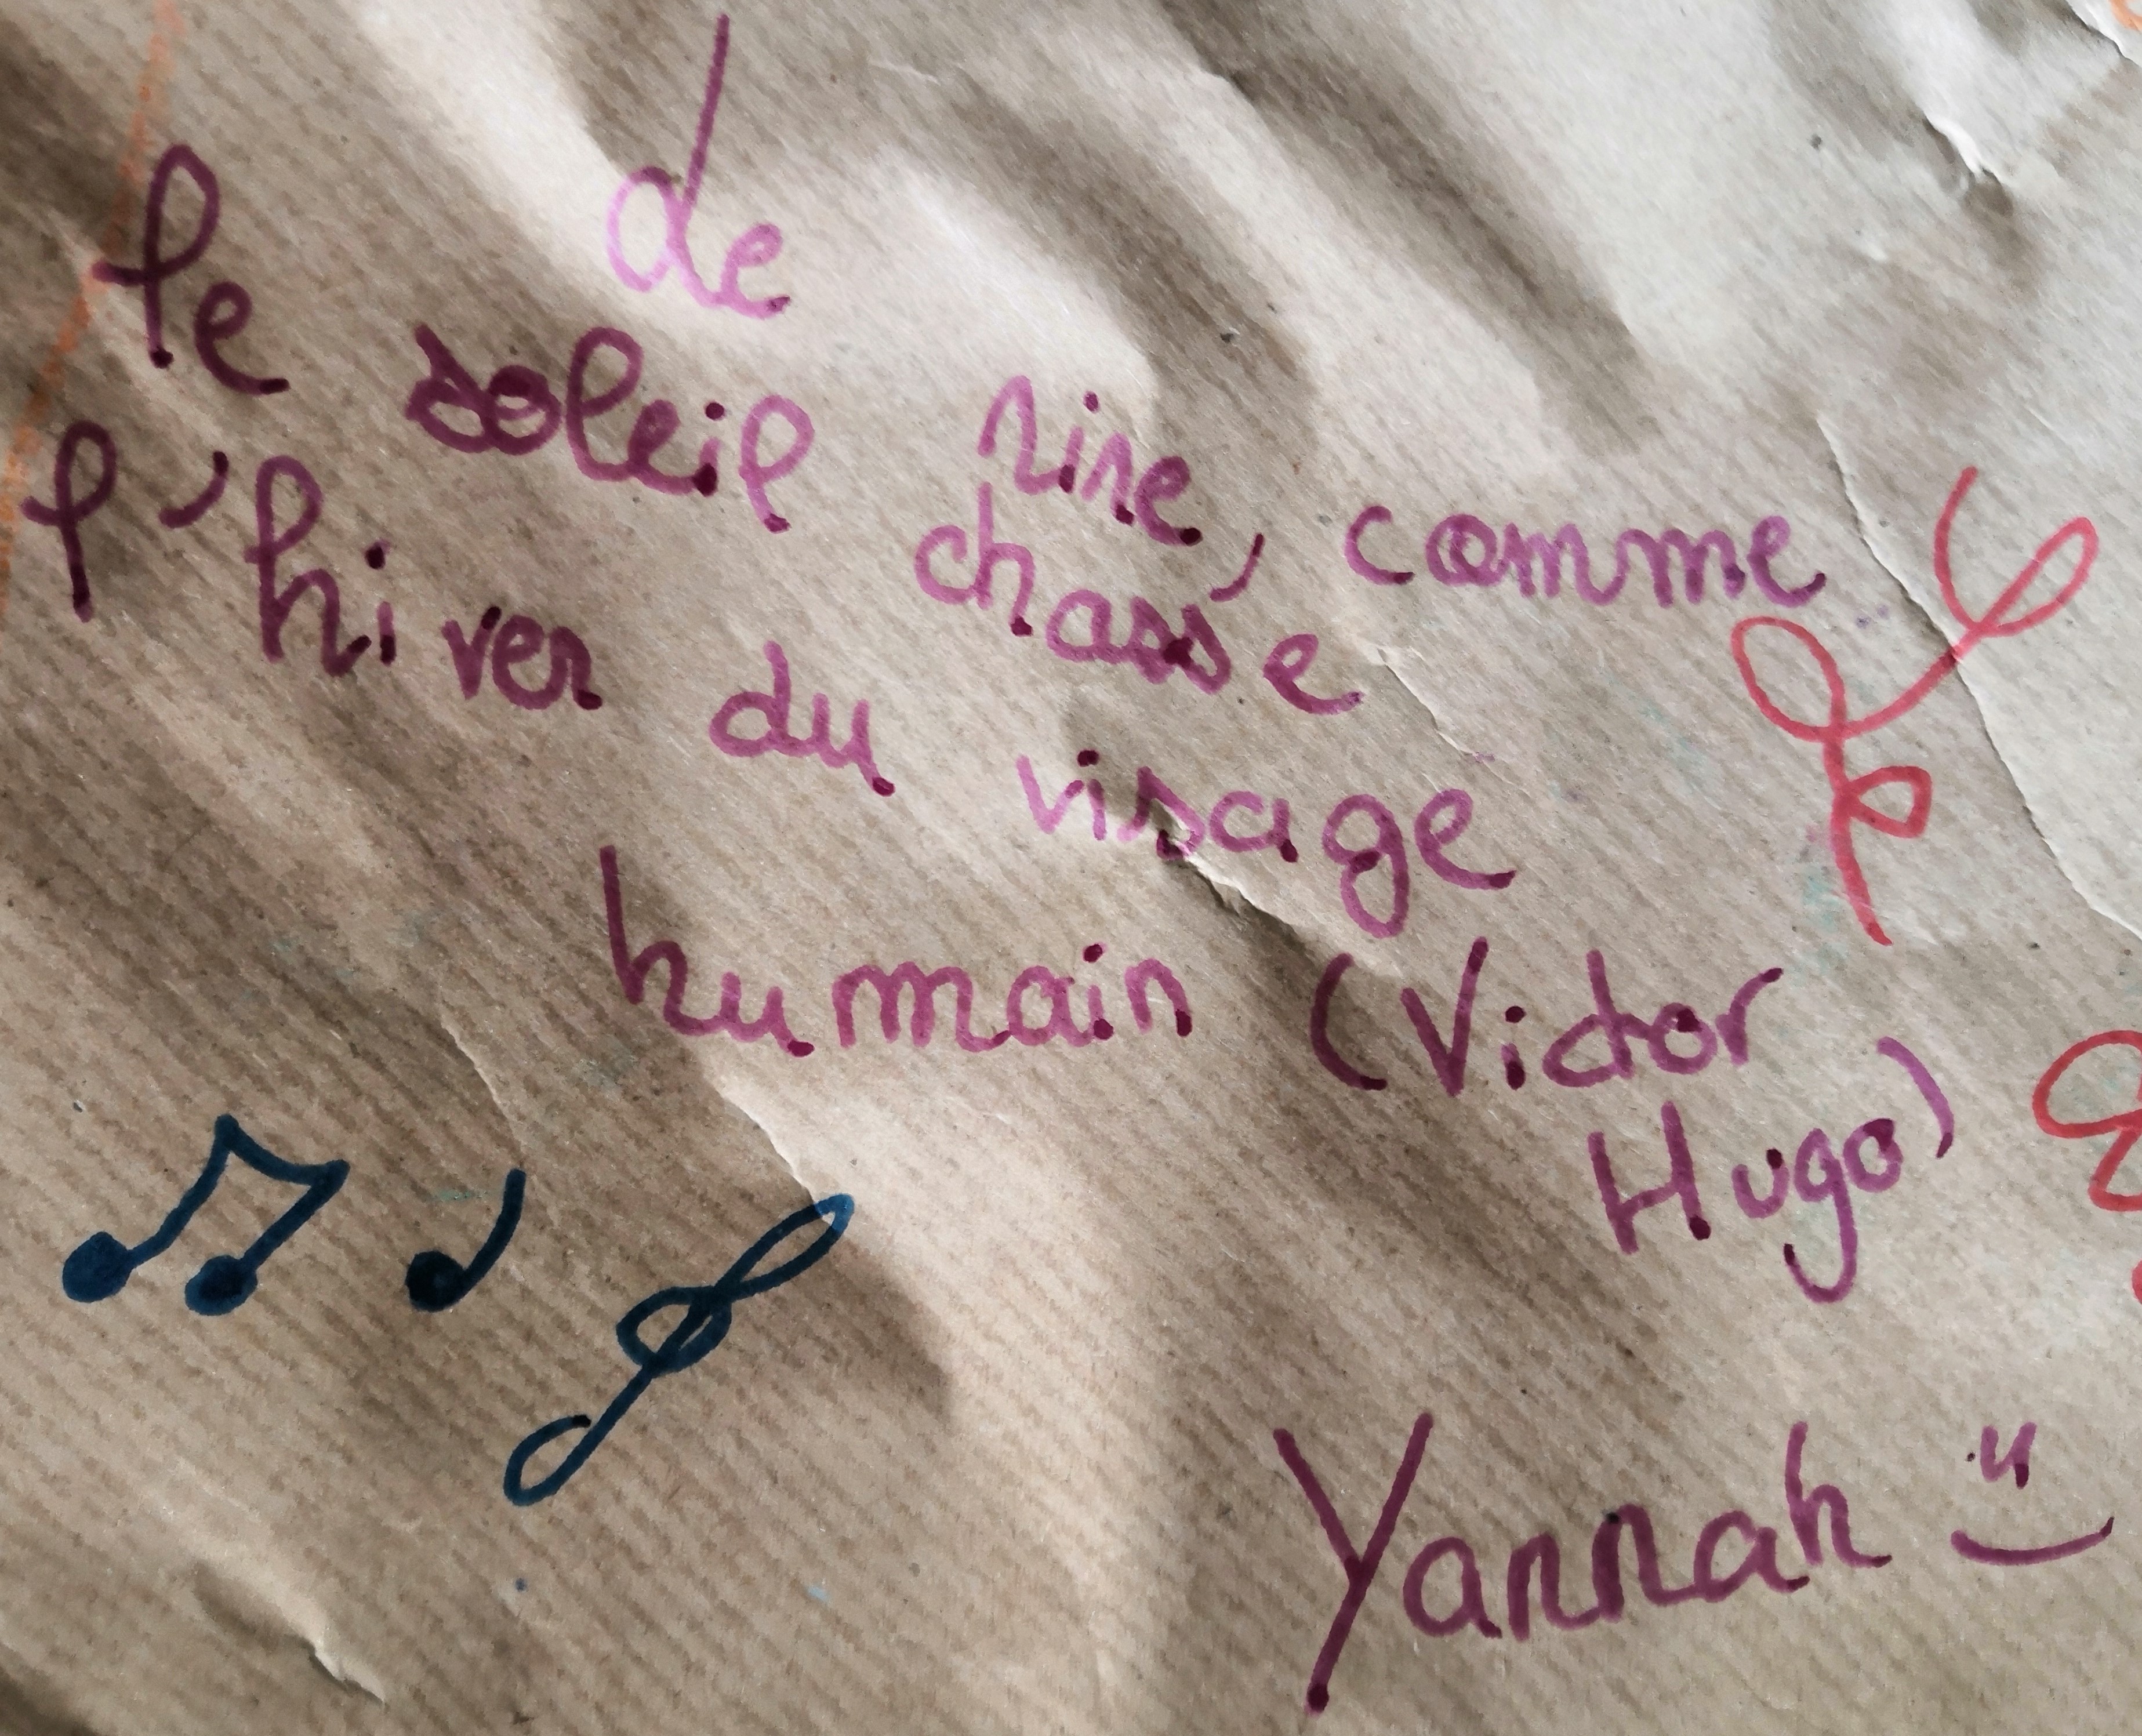 le de rire, comme
soleil chasse
l'hiver du visage
humain (Victor
Hugo)
Yannah